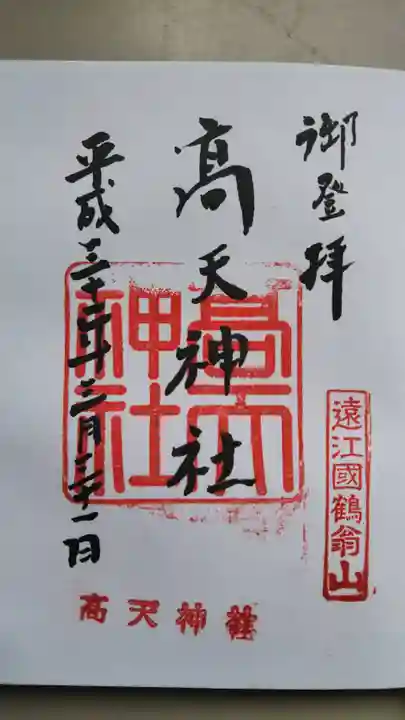 御登拝
遠江國鶴翁山
高天神社
高天神社
平成三十一年三月三十一日
高天神社